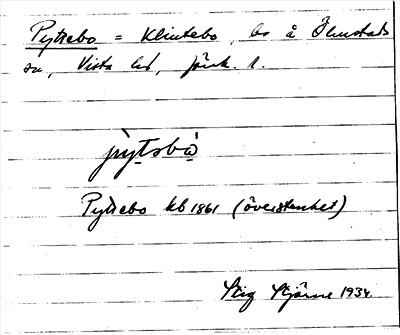 Pyttrebo = Klintebo, bs å Ölmstads
sn, Vista hd, Jönk. l.
pỳtsbò
Pyttrebo kb 1861 (överstruket)
Stig Stjärne 1934.